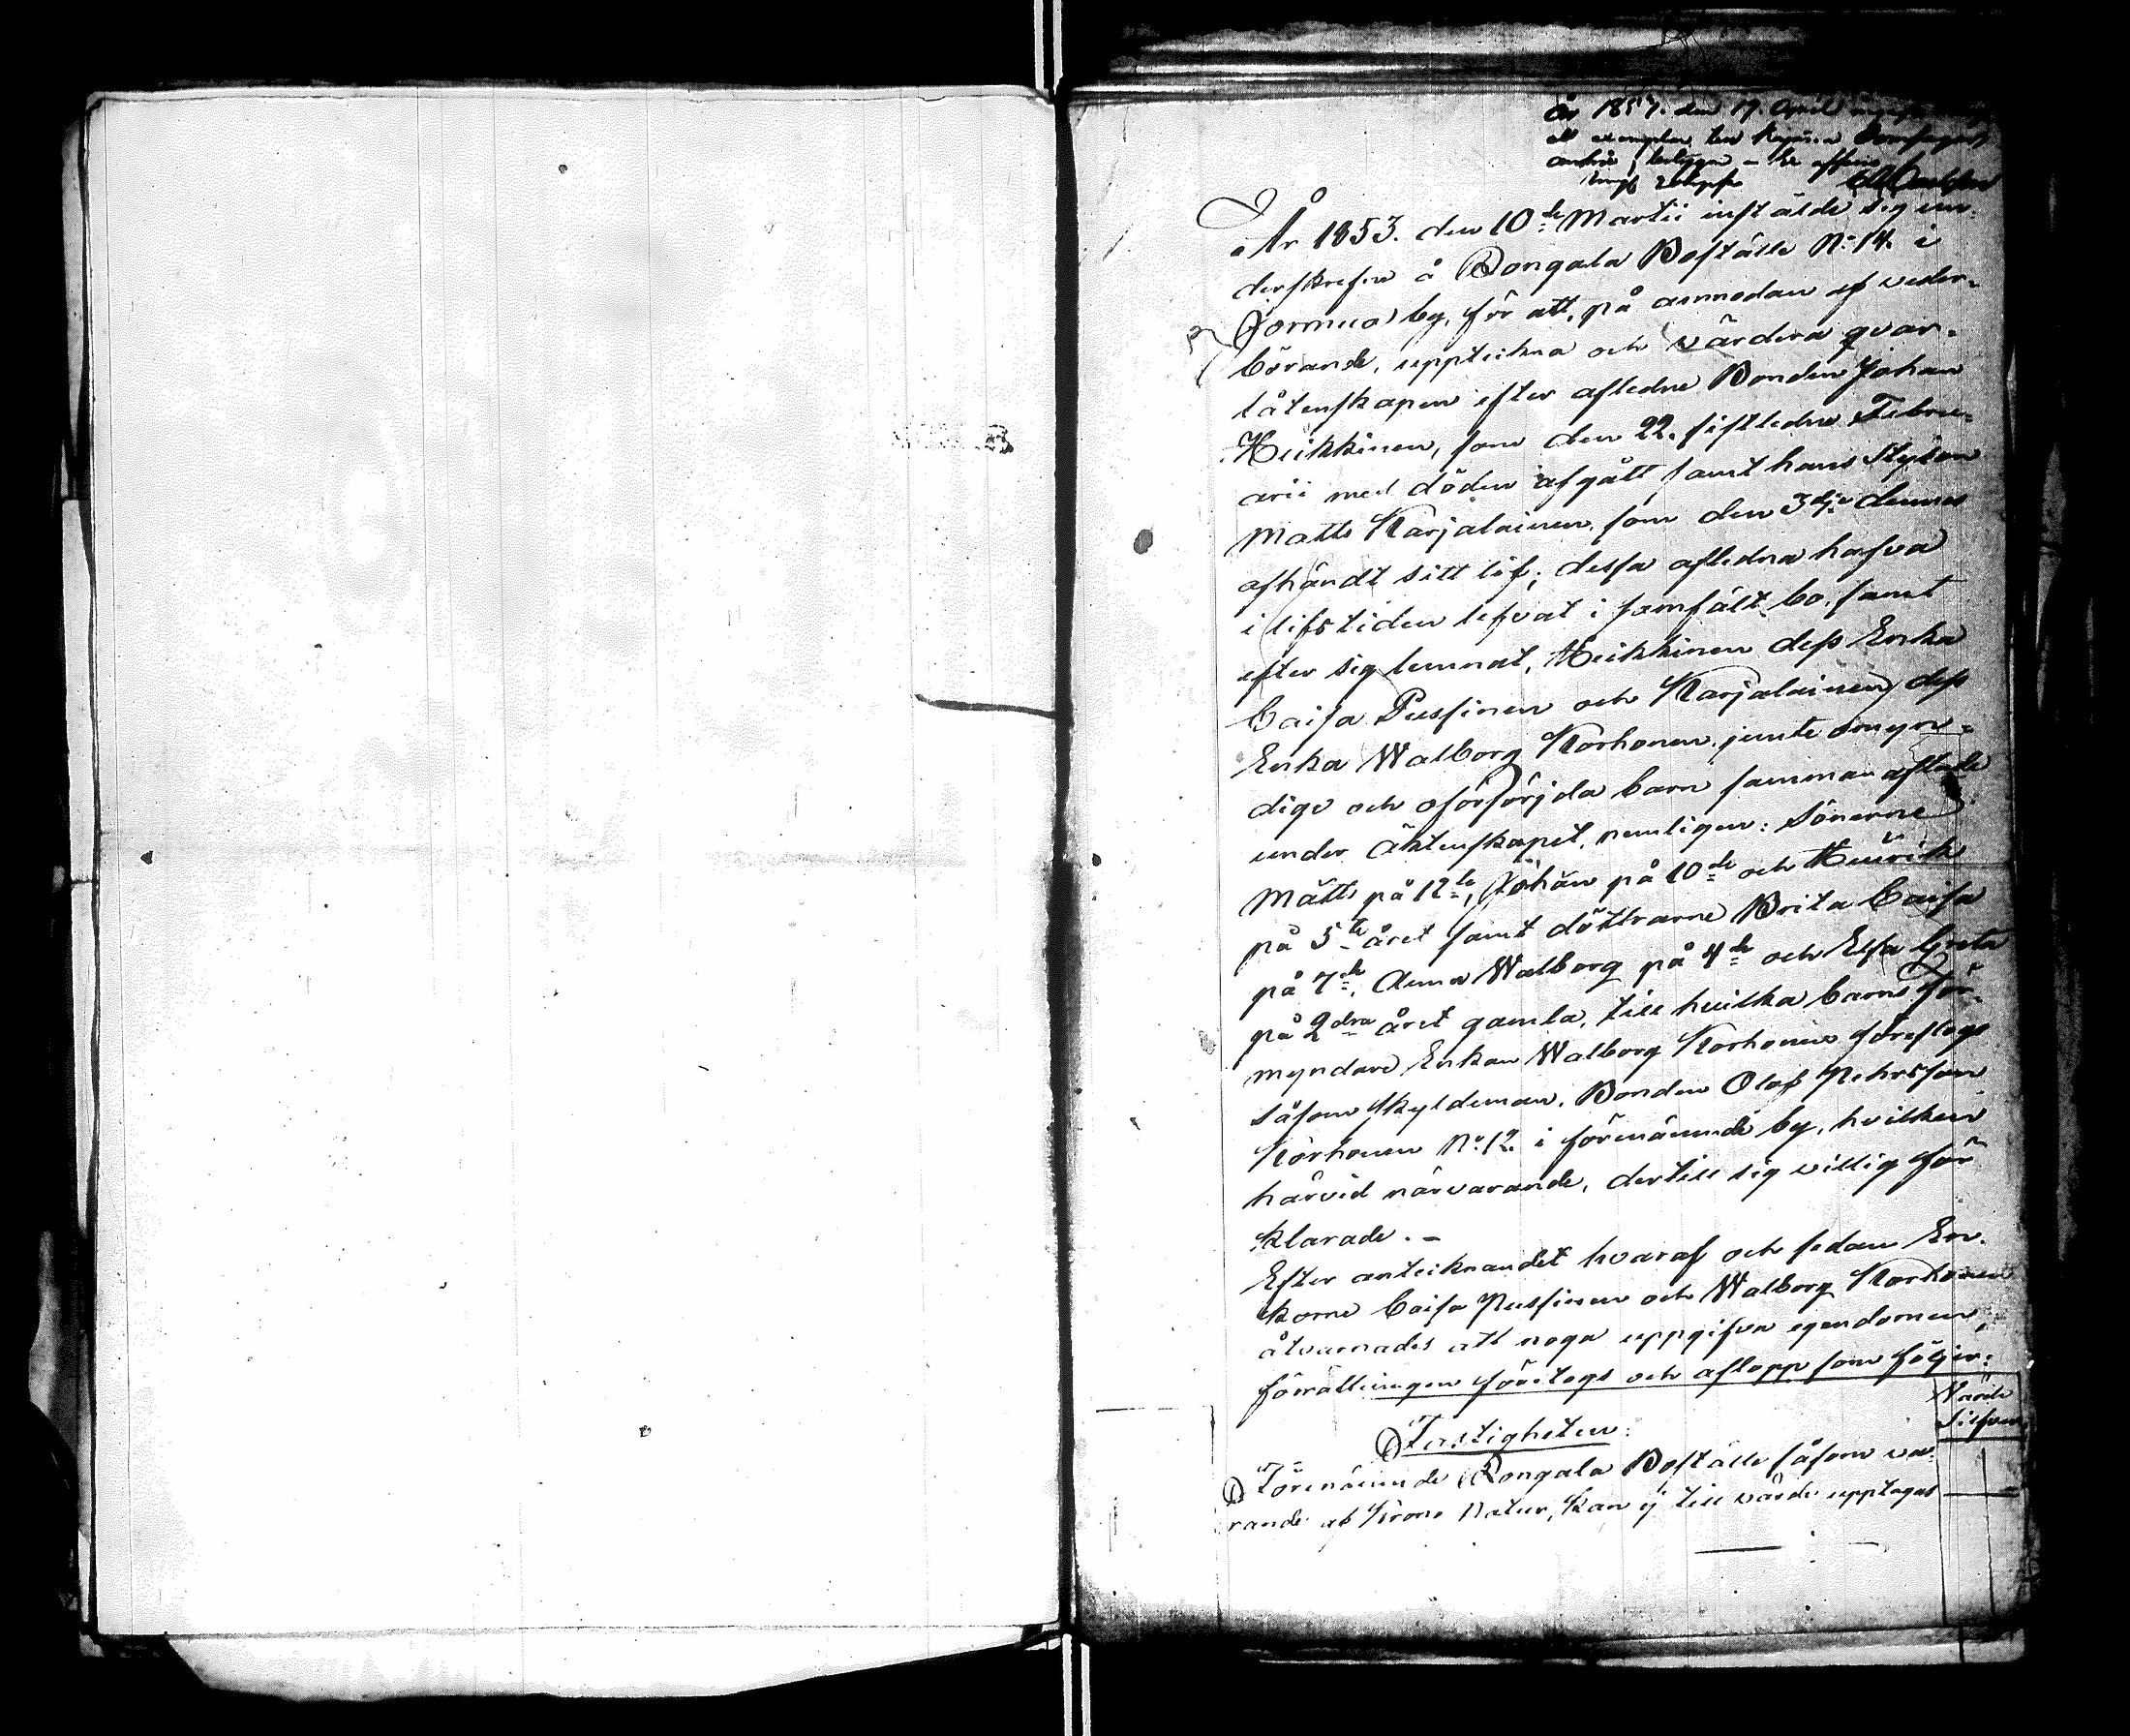 År 1857. den 17. April
År 1853. den 10de Martii instälde sig un-
derskrefne å Rongala Boställe No 14. i
Jormua by, för att, på anmodan af veder-
börande, uppteckna och värdera qvar-
låtenskapen efter aflidne Bonden Johan
Heikkinen, som den 22. sistledne Febru-
arii med döden afgått samt hans Styfson
Matts Karjalainen, som den 3dje dennes
afhändt sitt lif; dessa aflidna hafva
i lifstiden lefvat i samfält bo, samt
efter sig lemnat, Heikkinen dess Enka
Caisa Pussinen och Karjalainen dess
Enka Walborg Korhonen jemte omyn-
dige och oförsörjda barn sammanaflade
under äktenskapet, nemligen: Sönerne
Matts på 12te, Johan på 10de och Henrich
på 5te året samt döttrarne Brita Caisa
på 7de, Anna Walborg på 4de och Elsa Greta
på 2dra året gamla, till hvilka barns för-
myndare Enkan Walborg Korhonen föreslogs
såsom skyldeman, Bonden Olof Pehrsson
Korhonen No 12. i förenämnde by, hvilken
härvid närvarande, dertill sig villig för
klarade. -
Efter antecknandet hvaraf och sedan En-
korne Caisa Pussinen och Walborg Korhonen
åtvarnades att noga uppgifva egendomen,
förrättningen företogs och aflopp som följer:
Värde
Silfver
Fastigheten:
Förenämnde Rongala Boställe såsom va-
rande af Krono Natur, kan ej till värde upptagas